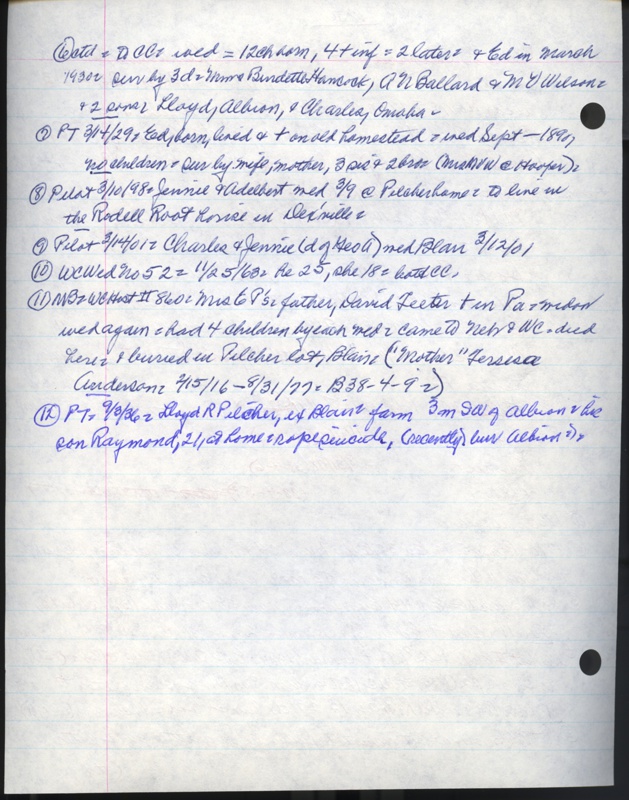 ⑥ctd = to CC = wed = 12ch born, 4 + inf = 2 later = & Ed in March
1930 = sur by 3d = Burdette Hancock, A N Ballard & M Wilson =
& 2 sons = Lloyd, Albion, & Charles, Omaha -
⑦ PT 3/14/29 = Ed, born, lived & + on old homestead = wed Sept - 1890,
no children = sur by wife, mother, 3 sis & 2 bro = @ Hooper) =
⑧ Pilot 3/10/98 = Jennie & Adelbert wed 3/9 @ Pilcher home = to live in
the Rodell Root house in
⑨ Pilot 3/14/01 = Charles & Jennie (d of Geo ) wed Blair 3/12/01
⑩ WC Wed No 52 = 11/25/63 = He 25, she 18 = both CC.
⑪ NB = WC Hist II 860 = Mrs 6 P's = father, David Teeter + in Pa = widow
wed again = had 4 children by each wed = came to Neb & WC = died
here = & buried in Pilcher lot, Blair ("Mother" Teresa
Anderson = 2/15/16 - 8/31/77 = B38-4-9 =)
⑫ PT = 9/3/36 = Lloyd R Pilcher, ex Blair = farm 3 m SW of Albion = his
son Raymond, 21, at home = rope suicide, (recently) bur Albion =) =